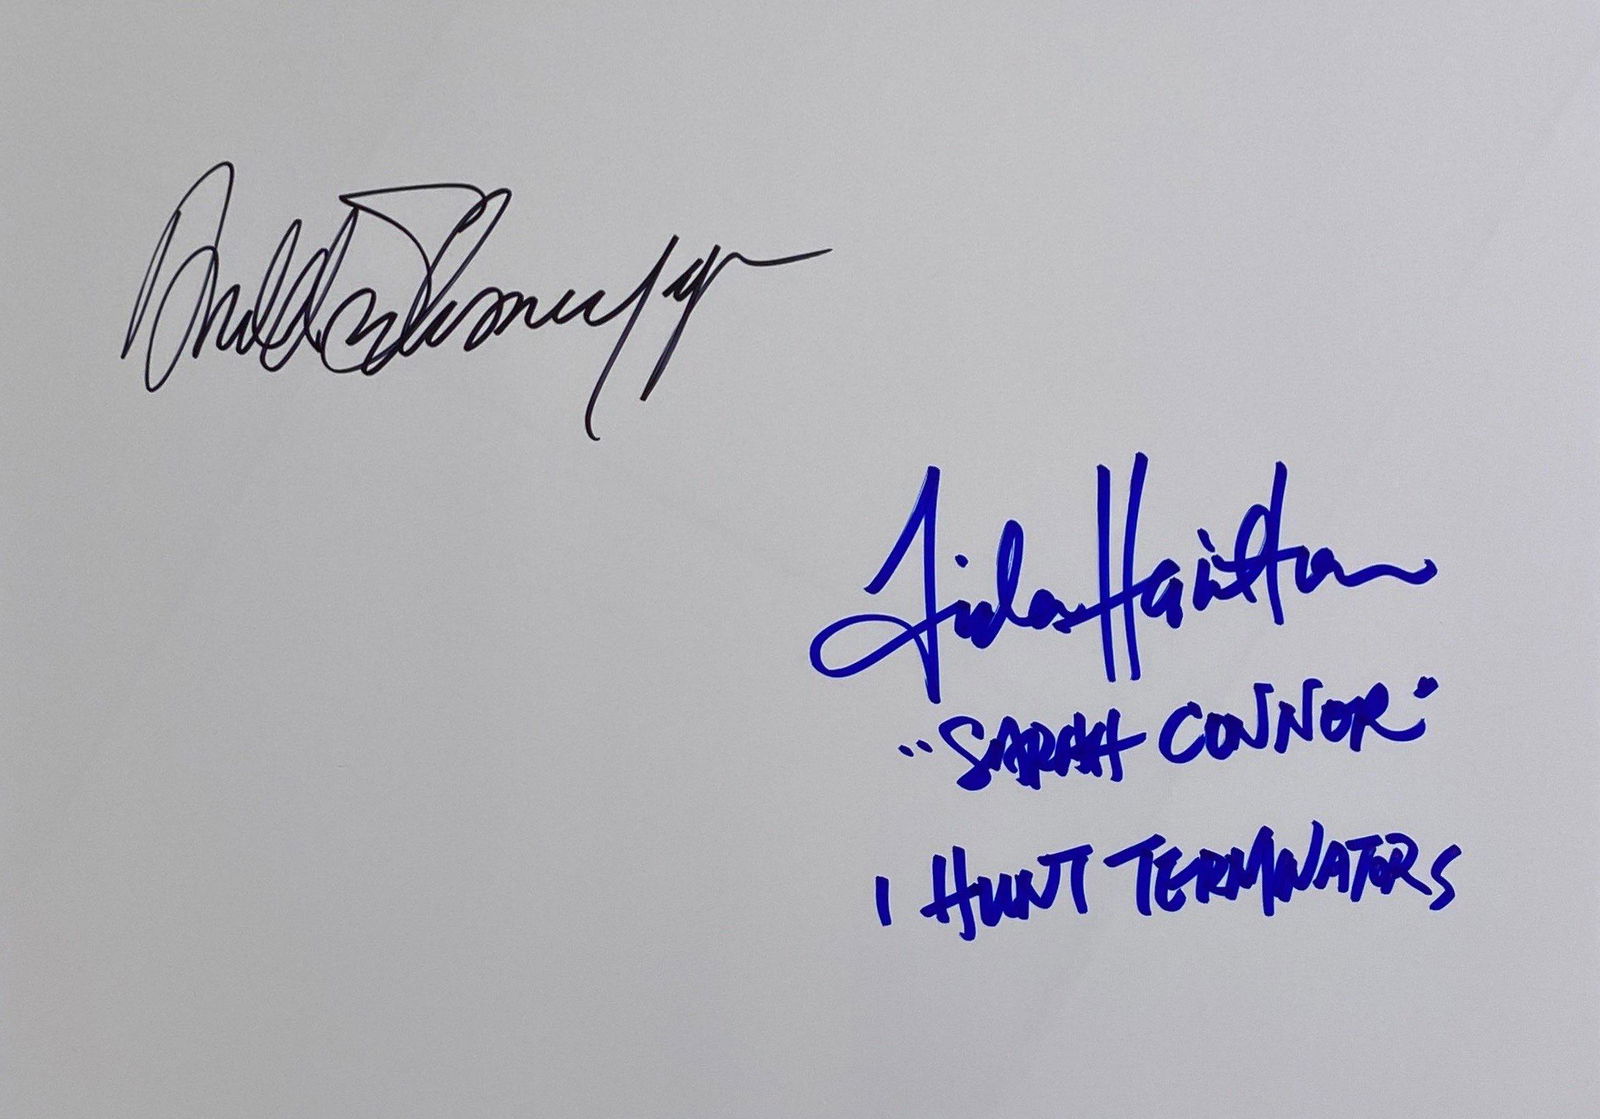 Arnold Schwarzenegger
Linda Hamilton
"SARAH CONNOR"
I HUNT TERMINATORS